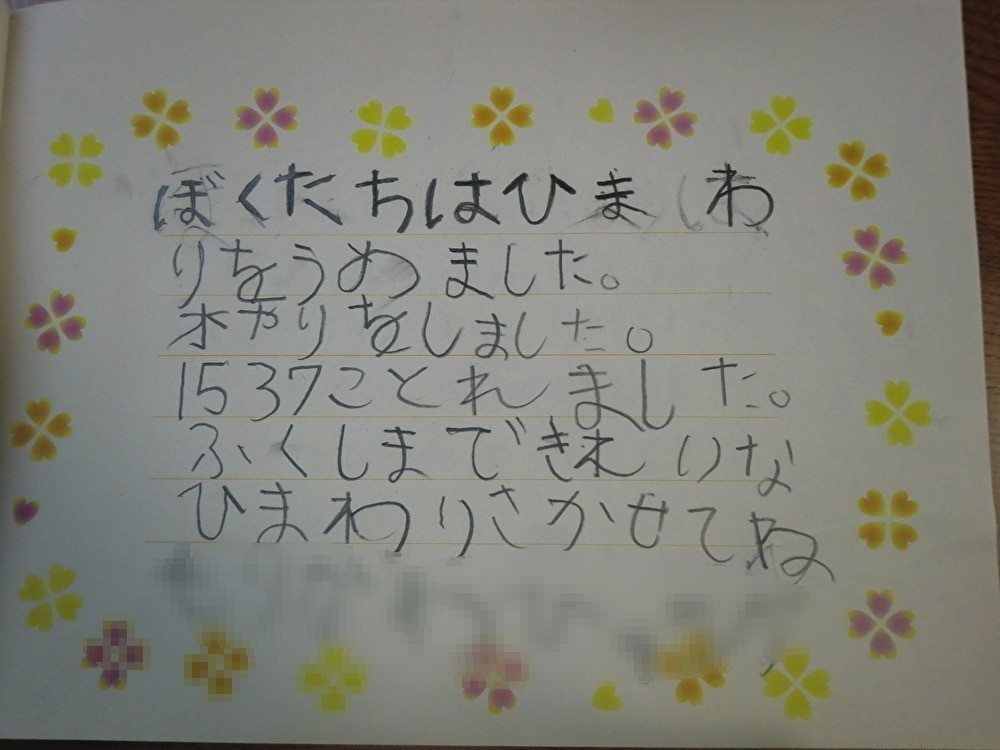 ぼくたちはひまわ
りをうめました。
水やりをしました。
1537ことれました。
ふくしまできれいな
ひまわりさかせてね